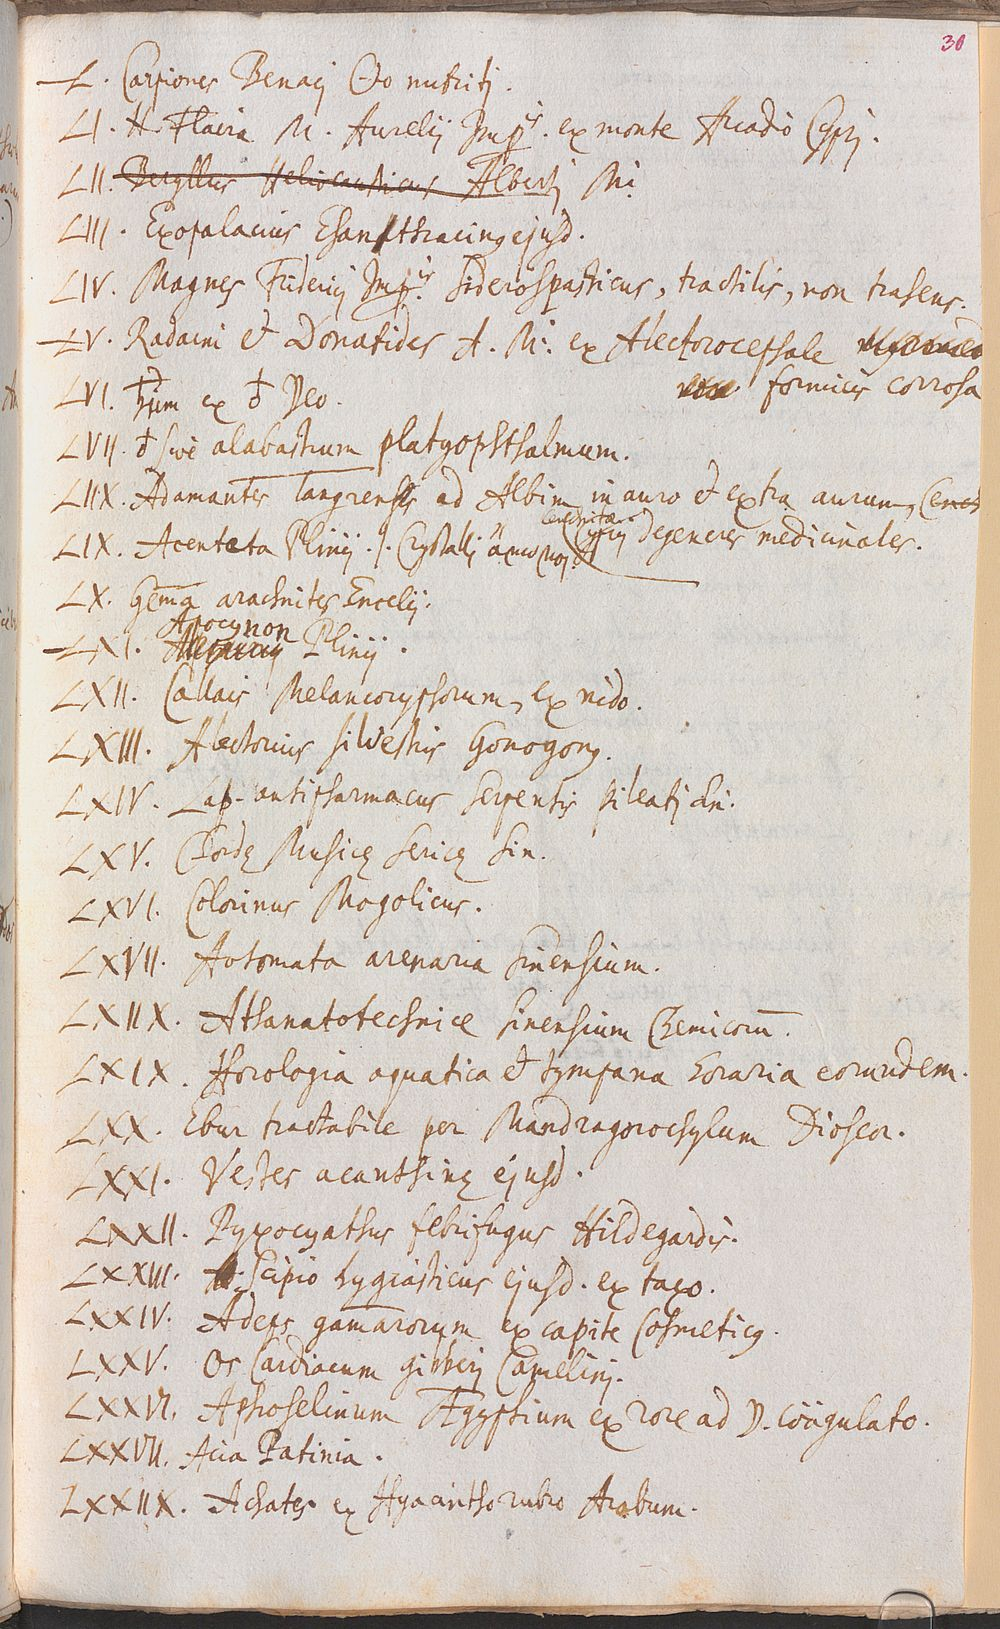 30
L. Carpiones Benacij ☉o nutritj.
LI. H. Flavia M. Aurelij Imp.is ex monte Arcadio Cyprj.
LII. Beryllus Heliocausticus Albertj Mi
LIII. Exophalacius ejusd.
LIV. Magnes Friderici Imp.is Siderospasticus, tractilis, non trahens.
LV. Radaini et Donatides A. Mi. ex Alectorocephale
formicis corrosa
LVI. ex Deo.
LVII. sive alabastrum platyophthalmum.
LIIX. Adamantes Tangrenses ad Albim in auro et extra aurum,
cenchritae
Cyprij degeneres medicinales.
LIX. Acenteta Plinij. Crystallj
LX. Gema arachnites Encelij.
Apocynon
LXI. Plinij.
LXII. Callais Melancoryphorum, ex nido.
LXIII. Alectorius silvestris Gonogong.
LXIV. Lap. antipharmacus serpentis pileatj
LXV. Chordę Musicę Sericę Sin.
LXVI. Colorinus Mogolicus.
LXVII. Automata arenaria Sinensium.
LXIIX. Athanatotechnice Sinensium Chemicorum.
LXIX. Horologia aquatica et tympana horaria eorundem.
LXX. Ebur tractabile per Mandragorochylum Dioscor.
LXXI. Vestes acanthinę ejusd.
LXXII. Pyxocyathus febrifugus Hildegardis.
LXXIII. Scipio hygiasticus ejusd. ex taxo.
LXXIV. Adeps gamarorum ex capite Cosmeticq.
LXXV. Os Cardiacum gibberj Camelinj.
LXXVI. Aphroselinum Ægyptium ex rore ad D. coagulato.
LXXVII. Acia Patinia.
LXXIIX. Achates ex Hyacintho rubro Arabum.